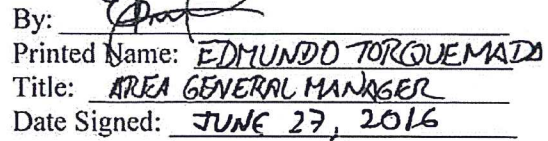 By:
Printed Name: EDMUNDO TORQUEMADA
Title: AREA GENERAL MANAGER
Date Signed: JUNE 27, 2016